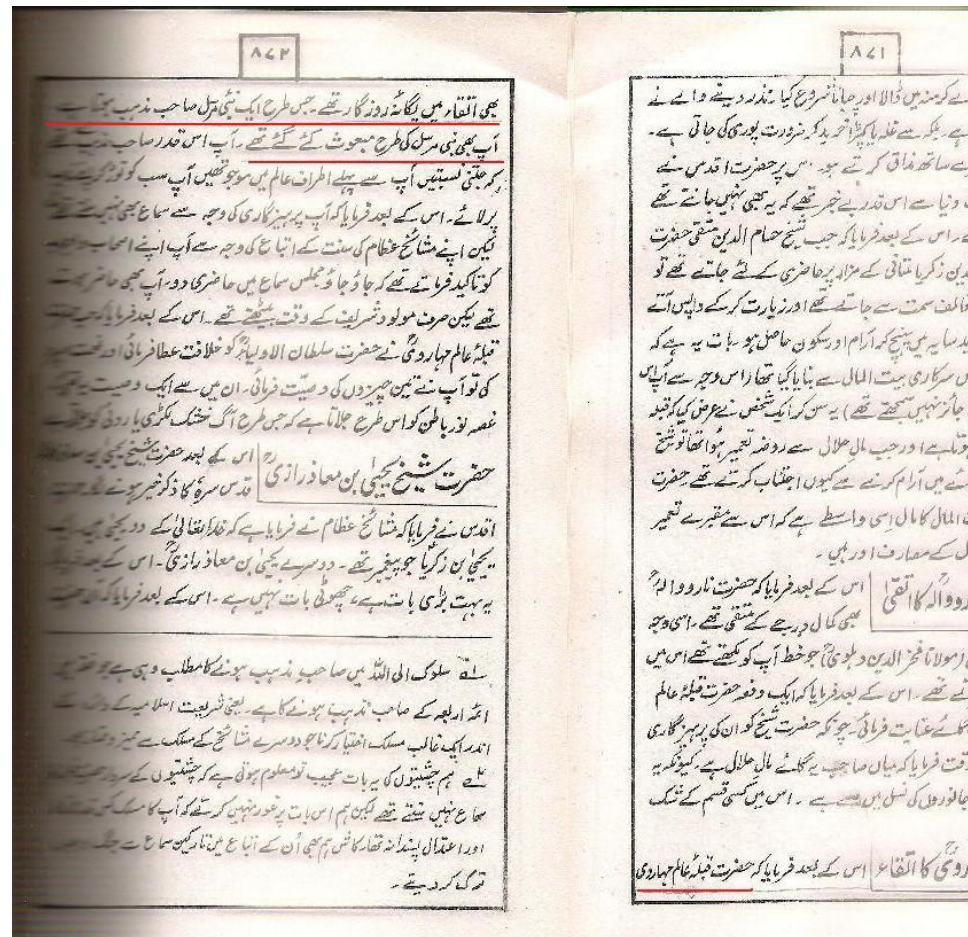 ۸۷۱
کے کر منہ میں ڈالا اور چبانا شروع کیا۔ نذر دینے والے نے
ہے۔ بلکہ سے غلہ یا کپڑا خرید کر ضرورت پوری کی جاتی ہے۔
ے ساتھ مذاق کرتے ہو۔ اس پر حضرت اقدس نے
دنیا سے اس قدر بے خبر تھے کہ یہ بھی نہیں جانتے تھے
اس کے بعد فرمایا کہ جب شیخ حسام الدین متقی حضرت
دین زکریا ملتانی کے مزار پر حاضری کے لئے جاتے تھے تو
مخالف سمت سے جاتے تھے اور زیارت کر کے واپس آتے
سایہ میں پہنچ کر آرام اور سکون حاصل ہو۔ بات یہ ہے کہ
س سرکاری بیت المال سے بنایا گیا تھا اس وجہ سے آپ اس
جائز نہیں سمجھتے تھے) یہ سن کر ایک شخص نے عرض کیا کہ قبلہ
ہوتا ہے اور جب مال حلال سے روضہ تعمیر ہوا تھا تو شیخ
ئے میں آرام کرنے سے کیوں اجتناب کرتے تھے۔ حضرت
المال کا مال اسی واسطے ہے کہ اس سے مقبرے تعمیر
ل کے مصارف اور ہیں۔
رووالہ کا اتقیٰ
اس کے بعد فرمایا کہ حضرت نارووالہؒ
بھی کمال درجے کے متقی تھے۔ اسی وجہ
مولانا فخر الدین دہلوی) جو خط آپ کو لکھتے تھے اس میں
تے تھے۔ اس کے بعد فرمایا کہ ایک دفعہ حضرت قبلۂ عالم
گائے عنایت فرمائی۔ چونکہ حضرت شیخ کو ان کی پرہیز گاری
وقت فرمایا کہ میاں صاحب یہ گائے مال حلال ہے۔ کیونکہ یہ
جانوروں کی نسل میں سے ہے۔ اس میں کسی قسم کے شک
روی کا اتقاء
اس کے بعد فرمایا کہ حضرت قبلۂ عالم مہاروی
۸۷۲
بھی اتقاء میں یگانہ روزگار تھے۔ جس طرح ایک نبی مرسل صاحب مذہب ہوتا ہے
آپ بھی نبی مرسل کی طرح مبعوث کئے گئے تھے۔ آپ اس قدر صاحب مذہب تھے
کہ جتنی نسبتیں آپ سے پہلے اطراف عالم میں موجود تھیں آپ سب کو توڑ کر اپنے
پر لائے۔ اس کے بعد فرمایا کہ آپ پرہیز گاری کی وجہ سے سماع بھی نہیں سنتے تھے
لیکن اپنے مشائخ عظام کی سنت کے اتباع کی وجہ سے آپ اپنے اصحاب
کو تاکید فرماتے تھے کہ جاؤ جاؤ مجلس سماع میں حاضری دو۔ آپ بھی حاضر ہوتے
تھے لیکن صرف مولود شریف کے وقت بیٹھتے تھے۔ اس کے بعد فرمایا کہ جب حضرت
قبلۂ عالم مہارویؒ نے حضرت سلطان الاولیاءؒ کو خلافت عطا فرمائی اور رخصت
کی تو آپ نے تین چیزوں کی وصیت فرمائی۔ ان میں سے ایک وصیت یہ تھی کہ
غصہ نور باطن کو اس طرح جلاتا ہے کہ جس طرح آگ خشک لکڑی یا روئی کو
حضرت شیخ یحییٰ بن معاذ رازیؒ
اس کے بعد حضرت شیخ یحییٰ بن معاذ
قدس سرہٗ کا ذکر خیر ہونے لگا۔ حضرت
اقدس نے فرمایا کہ مشائخ عظام نے فرمایا ہے کہ خدا تعالیٰ کے دو یحییٰ ہیں۔ ایک
یحییٰ بن زکریا جو پیغمبر تھے۔ دوسرے یحییٰ بن معاذ رازیؒ۔ اس کے بعد فرمایا
یہ بہت بڑی بات ہے، چھوٹی بات نہیں ہے۔ اس کے بعد فرمایا کہ
لہ سلوک الی اللہ میں صاحب مذہب ہونے کا مطلب وہی ہے جو فقہ میں
ائمہ اربعہ کے صاحب مذہب ہونے کا ہے۔ یعنی شریعت اسلامیہ کے دائرہ کے
اندر ایک غالب مسلک اختیار کرنا جو دوسرے مشائخ کے مسلک سے ممیز
ہم چشتیوں کی یہ بات عجیب تو معلوم ہوتی ہے کہ چشتیوں کے سردار
سماع نہیں سنتے تھے لیکن ہم اس بات پر غور نہیں کرتے کہ آپ کا مسلک کس قدر
اور اعتدال پسندانہ تھا۔ کاش ہم بھی اُن کے اتباع میں تارکین سماع سے جنگ
ترک کر دیتے۔